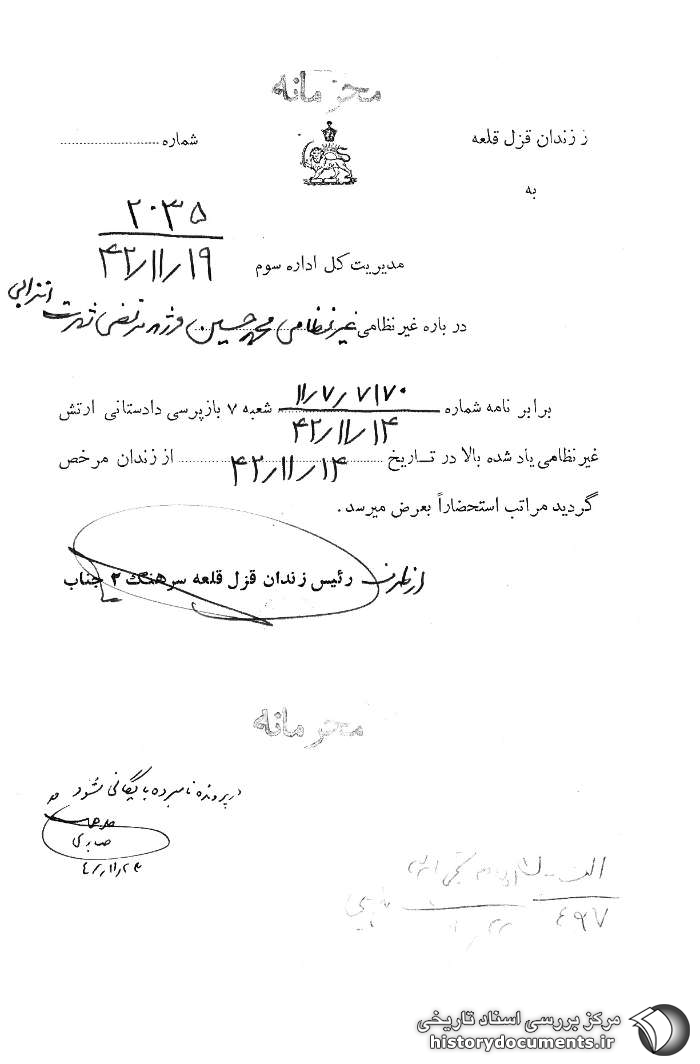 محرمانه
از زندان قزل قلعه
شماره
به
۲۰۳۵
۴۲/۱۱/۱۹
مدیریت کل اداره سوم
در باره غیر نظامی غیرنظامی محمد حسین فرزند مرتضی شهرت
برابر نامه شماره ۱۱/۷/۷۱۷۰ شعبه ۷ بازپرسی دادستانی ارتش
۴۲/۱۱/۱۴
غیر نظامی یاد شده بالا در تاریخ ۴۲/۱۱/۱۴ از زندان مرخص
گردید مراتب استحضاراً بعرض میرسد.
از طرف رئیس زندان قزل قلعه سرهنگ ۲ جناب
محرمانه
در پرونده نامبرده بایگانی شود
۴۹۷
مرکز بررسی اسناد تاریخی
historydocuments.ir